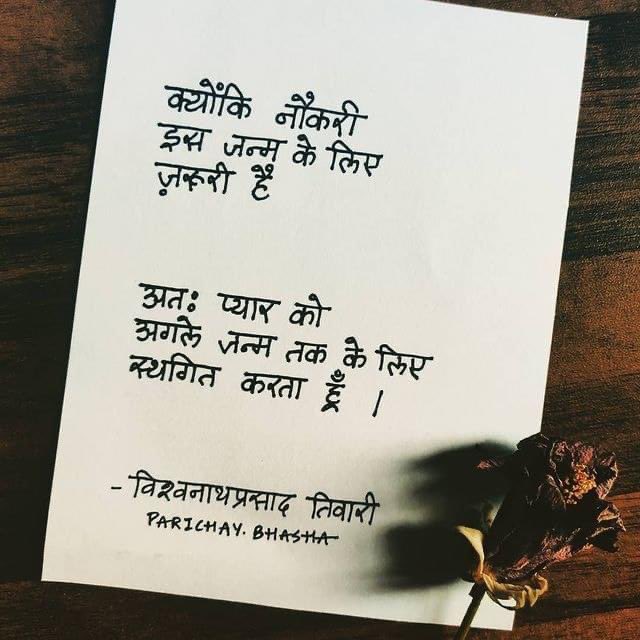 क्योंकि नौकरी
इस जन्म के लिए
ज़रूरी है
अतः प्यार को
अगले जन्म तक के लिए
स्थगित करता हूँ ।
- विश्वनाथप्रसाद तिवारी
PARICHAY. BHASHA